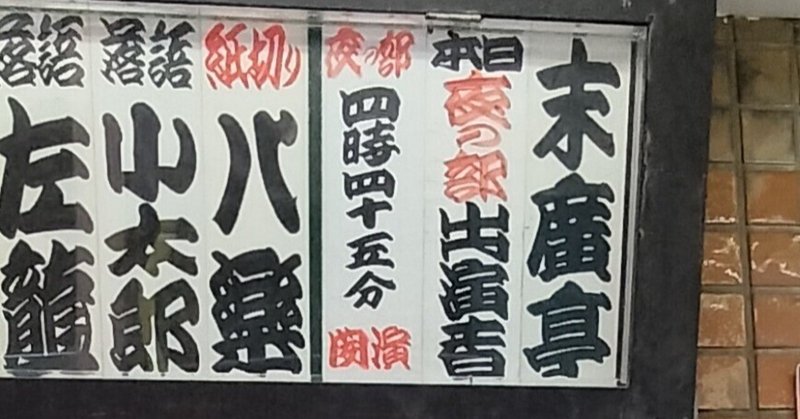 末廣亭
本日
夜の部
出演者
夜の部
四時四十五分
開演
紙切り
八楽
落語
小太郎
落語
左龍